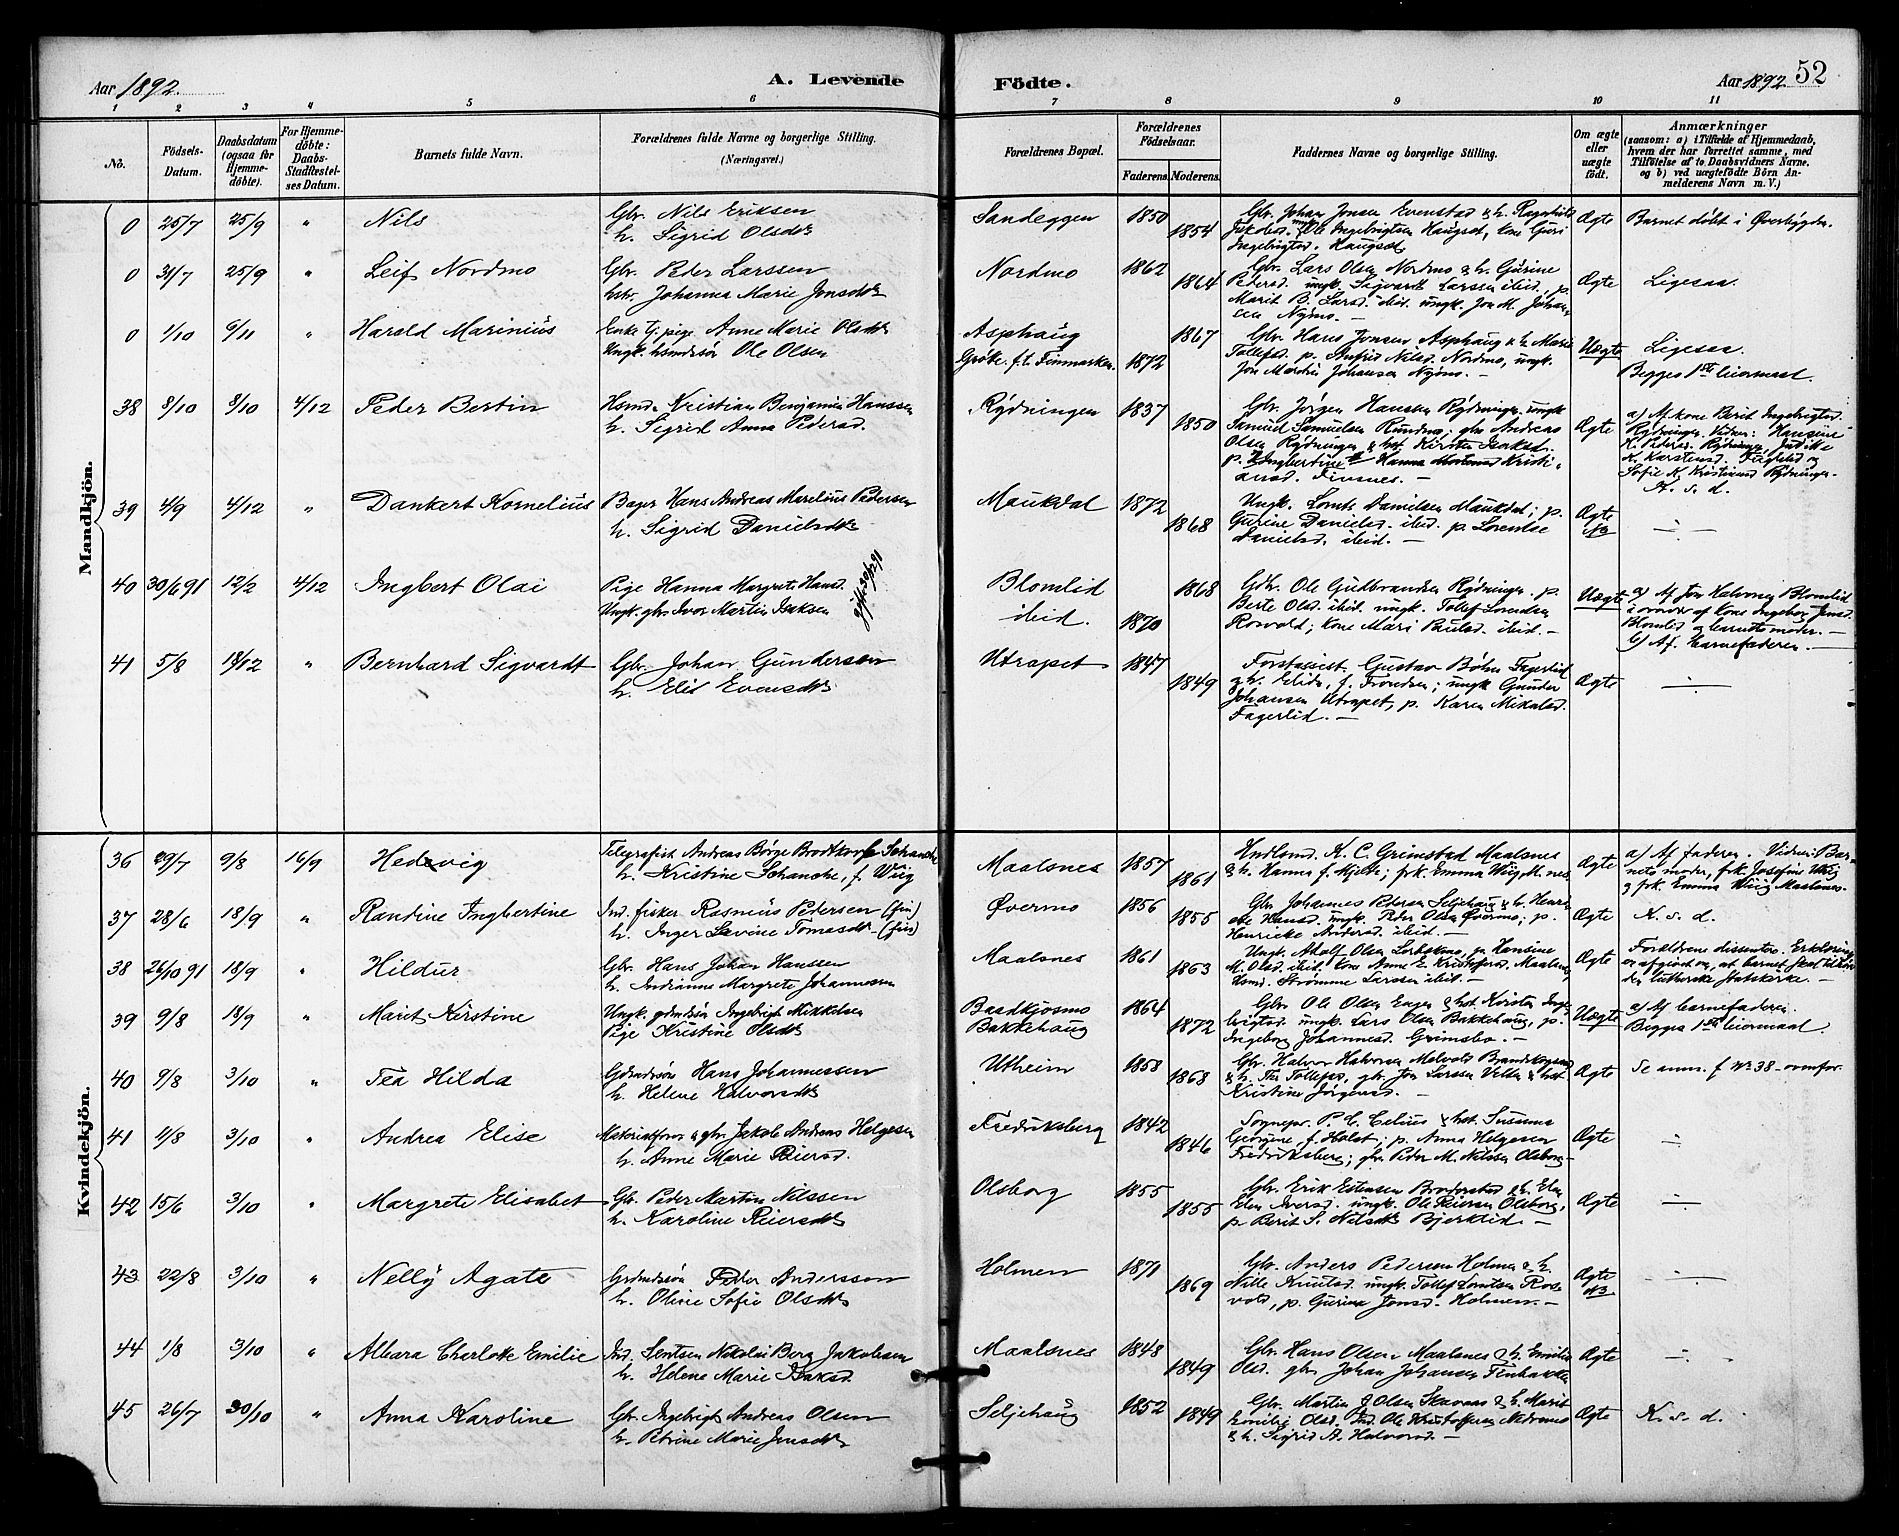 Aar 1892.
A. Levende
Födte.
Aar 1892.
52
1 2 3 4 5 6 7 8 9 10 11
No.
Födsels-
Datum.
Daabsdatum
(ogsaa for
Hjemme-
döbte).
For Hjemme-
döbte:
Daabs-
Stadfæstel-
ses Datum.
Barnets fulde Navn.
Forældrenes fulde Navne og borgerlige Stilling.
(Næringsvei.)
Forældrenes Bopæl.
Forældrenes
Födselsaar.
Faderens. Moderens.
Faddernes Navne og borgerlige Stilling.
Om ægte
eller
uægte
født.
Anmærkninger
(saasom: a) i Tilfælde af Hjemmedaab,
hvem der har forrettet samme, med
Tilföielse af to Daabsvidners Navne,
og b) ved uægtefödte Börn An-
melderens Navn m. V.)
Mandkjön.
0 25/7 25/9 " Nils
Gbr. Nils Eriksen
h. Sigrid Olsdtr
Sandeggen 1850 1854
Gbr. Johan Jonsen Evenstad & h. Ragnhild
Jakobsd. ungk. Ole Ingebrigtsen Haugset, kone Guri
Ingebrigtsd. Haugset
Ægte
Barnet døbt i Øverbygden.
0 31/7 25/9 " Leif Nordmo
Gbr. Peder Larssen
hstr. Johanna Marie Jonsdtr
Nordmo 1862 1864
Gbr. Lars Olsen Nordmo & h. Gurine
Pedersd. ungk. Sigvart Larssen ibid., p.
Marit B. Larsd. ibid. ungk. Jon M. Johan-
sen Nymo. —
Ægte
Ligesaa.
0 1/10 6/11 " Harald Marinius
Enke tj. pige Anne Marie Olsdtr
Ungk. hsmdssøn Ole Olsen
Asphaug
Grøke. f.t. Finmarken. 1872 1867
Gbr. Hans Jonsen Asphaug & h. Marie
Tollefsd. p. Anfrid Nilsd. Nordmo, ungk.
Jon Martin Johansen Nymo. —
Uægte
Ligesaa.
Begges 1ste leiermaal.
38 8/10 8/10 4/12 Peder Bertin
Hsmd. Kristian Benjamin Hanssen
h. Sigrid Anna Pedersd.
Rydningen 1837 1850
Gbr. Jørgen Hansen Rydningen. ungk
Samuel Samuelsen Rundmo; gbr Andreas
Olsen Rydningen & hst Kirsten Isaksd.
p. Ingbertine Hanna Kristi-
ansd. Finsnes. —
Ægte
a) Af kone Berit Ingebrigtsd.
Rydningen. Vidner: Hansine
K. Pedersd. Rydningen
K. Karstensd. Fagerlid og
Sofie K. Kristiansd Rydningen.
N. s. d.
39 4/9 4/12 " Dankert Kornelius
Bager Hans Andreas Marelius Pedersen
h. Sigrid Danielsdtr
Maukdal 1872 1868
Ungk. Lornts Danielsen Maukdal; p.
Gurine Danielsd. ibid. p. Lorentse
Danielsd. ibid. —
Ægte
40 30/6 91 12/2 4/12 Ingbert Olai
Pige Hanna Margrete Hansd.
Ungk. gbr. Ivar Martin Isaksen
Blomlid
ibid. 1870 1868
Gbr. Ole Gulbrandsen Rydningen. p.
Berte Olsd. ibid. ungk. Tollef Lorendsen
Rosvold; kone Mari Paulsd. ibid. —
Uægte
a) Af Jon Halvorsen Blomlid
i overvær af kone Ingeborg Jensd.
Blomlid og barnets moder. —
b) Af barnefaderen. —
41 5/8 18/12 " Bernhard Sigvardt
Gbr. Johan Gundersen
h. Elis Evensdtr
Utrapet 1847 1849
Forstassist. Gustav Bøhn Fagerlid
& h. Elida, f. Frondsen; ungk Gunder
Johansen Utrapet, p. Karen Mikalsd.
Fagerlid. —
Ægte
Kvindekjön.
36 29/7 9/8 16/9 Hedevig
Telegrafist Andreas Børge Brodtkorb Schanche
h. Kristine Schanche, f. Wiig
Maalsnes 1857 1861
Hndlsmd. K. C. Grimstad Maalsnes
& h. Hanna f. Mjelte; frk. Emma Wiig M.nes
Ægte
a) Af faderen. Vidner: Bar-
nets moder, frk. Josefine Wiig
& frk. Emma Wiig Maalsnes.
37 28/6 18/9 " Randine Ingbertine
Ind. fisker Rasmus Pedersen (fin)
h. Inger Lavine Tomasdtr (fin)
Øvermo 1856 1855
Gbr Johannes Pedersen Seljehaug & h. Henri-
ette Hansd. ungk. Peder Olsen Øvermo; p.
Henrikke Andersd. ibid. —
Ægte
N. s. d.
38 26/10 91 18/9 " Hildur
Gbr. Hans Johan Hanssen
h. Indianna Margrete Johannessen
Maalsnes 1861 1863
Ungk. Adolf Olsen p. Hansine
M. Olsd. ibid, kone Anne E. Kristoffersd. Maalsnes,
Hsmd. Strømme Larssen ibid. —
Ægte
Forældrene dissentere. Erklæring
er afgivet om, at barnet skal tilhøre
den lutherske statskirke. —
39 9/8 18/9 " Marit Kirstine
Ungk. gdmdssøn Ingebrigt Mikkelsen
Pige Kristine Olsdtr
Baadkjosmo
Bakkehaug 1864 1872
Gbr. Ole Olsen Engen & hst Kirsten Inge-
brigtsd. ungk. Lars Olsen Bakkehaug, p.
Ingeborg Johannesd. Grimsbo. —
Uægte
a) Af barnefaderen.
Begges 1ste leiermaal.
40 9/8 3/10 " Tea Hilda
Gdmdssøn Hans Johannessen
h. Helene Halvorsdtr
Utheim 1858 1868
Gbr. Halvor Halvorsen Melvold Brandskognes
& h. Tollefsd, gbr. Jon Larssen & hst.
Kristine Jørgensd.
Ægte
Se anm. f. No 38 – ovenfor.
41 4/8 3/10 " Andrea Elise
Materialforv. & gbr. Jakob Andreas Helgesen
h. Anne Marie Reiersd.
Fredriksberg 1842 1846
Sognepr. P. C. Celius & hst. Susanna
Georgine, f. Holst; p. Anna Helgesen
Fredriksberg; gbr. Peder M. Nilssen Olsborg —
Ægte
42 15/6 3/10 " Margrete Elisabet
Gbr. Peder Martin Nilssen
h. Karoline Reiersdtr
Olsborg 1855 1855
Gbr. Erik Estensen Brodorstad & h. Elen
Elen Iversd. ungk. Ole Reiersen Olsborg,
p. Berit S. Nilsdtr Bjerklid. —
Ægte
43 22/8 3/10 " Nelly Agate
Grdmdssøn Peder Anderssen
h. Oline Sofie Olsdtr
Holmen 1871 1869
Gbr. Anders Pedersen Holmen & h.
Nille Knutsd. ungk. Tollef Lorntsen Ros-
vold, p. Gurine Jonsd. Holmen. —
Ægte
44 1/8 3/10 " Albara Charlotte Emilie
Ind. Nikolai Berg Jakobsen
h. Helene Marie Isaksd.
Maalsnes 1848 1849
Gbr. Hans Olsen Maalsnes & h. Emilie
Olsd. gbr. Johan Johansen Finbakken
Ægte
45 26/7 30/10 " Anna Karoline
Gbr. Ingebrigt Andreas Olsen
h. Petrine Marie Jonsdtr
Seljehaug 1852 1849
Gbr. Martin J. Olsen & h. Marit
Emilie Olsd. Ind. Ole Kristoffersen Nedremo
& h. Sigrid A. Halvorsd. —
Ægte
N. s. d.